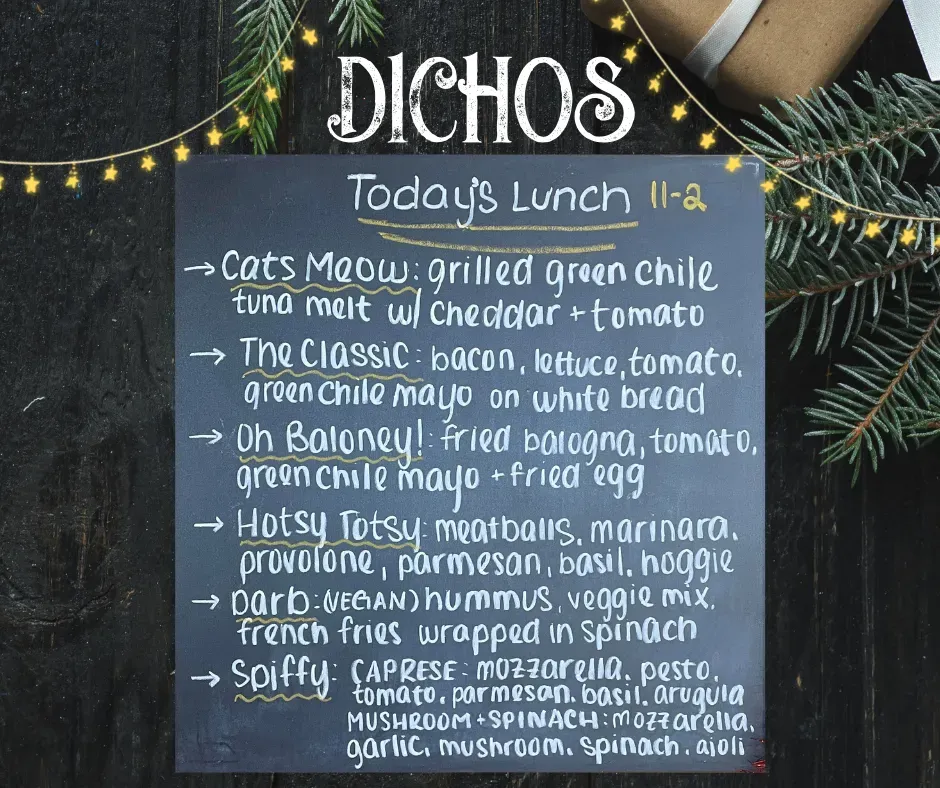 DICHOS
Today's Lunch 11-2
→ Cats Meow: grilled green chile
tuna melt w/ cheddar + tomato
→ The Classic: bacon, lettuce, tomato,
green chile mayo on white bread
→ Oh Baloney!: fried balogna, tomato,
green chile mayo + fried egg
→ Hotsy Totsy: meatballs, marinara,
provolone, parmesan, basil, hoggie
→ Darb: (VEGAN) hummus, veggie mix,
french fries wrapped in spinach
→ Spiffy: CAPRESE: mozzarella, pesto,
tomato, parmesan, basil, arugula
MUSHROOM + SPINACH: mozzarella,
garlic, mushroom, spinach, aioli